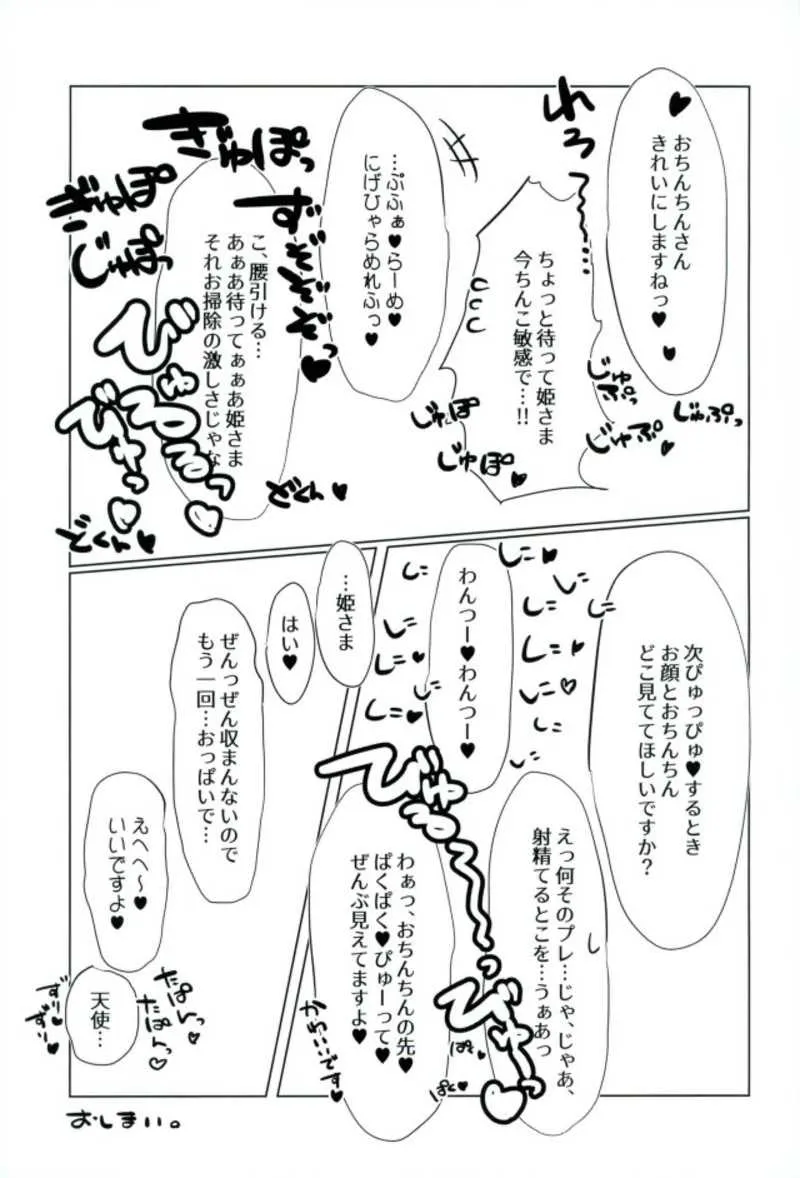 おちんちんさん
きれいにしますねっ♥
れろ〜〜……
ちょっと待って姫さま
今ちんこ敏感で…!!
じゅぷっ
じゅぷっ
じゅぷ♥
…ぷふぁ♥らーめ♥
にげひゃらめれふっ♥
じゅぽ
じゅぽ♥
ずぞぞぞっ♥
こ、腰引ける…
あぁあ待ってぁぁあ姫さま
それお掃除の激しさじゃな
ぎゅぽっ
びゅっ♥
どくん♥
どくん♥
次ぴゅっぴゅ♥するとき
お顔とおちんちん
どこ見ててほしいですか?
わんつー♥わんつー♥
えっ何そのプレ…じゃ、じゃあ、
射精てるとこを…うぁあっ
びゅる〜〜っ
びゅっ
わぁっ、おちんちんの先♥
ぱくぱく♥ぴゅーって♥
ぜんぶ見えてますよ♥
かわいいです♥
ぱく♥
…姫さま
はい♥
ぜんっぜん収まんないので
もう一回…おっぱいで…
えへへ〜♥
いいですよ♥
たぱんっ
たぱんっ♥
天使…
おしまい。